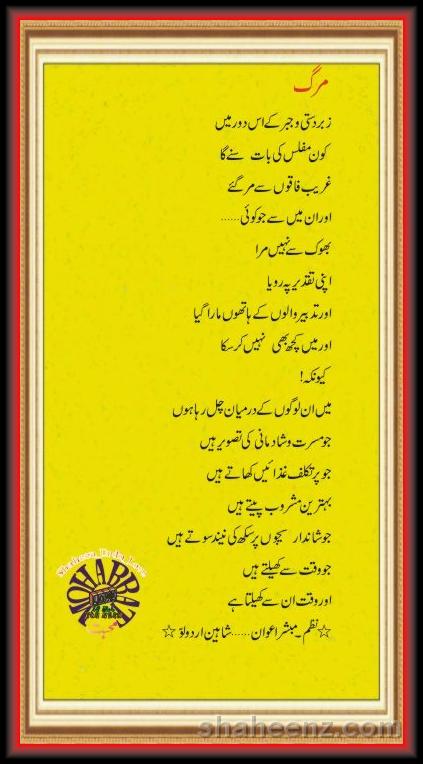 مرگ
زبردستی و جبر کے اس دور میں
کون مفلس کی بات سنے گا
غریب فاقوں سے مر گئے
اور ان میں سے جو کوئی......
بھوک سے نہیں مرا
اپنی تقدیر پہ رویا
اور تدبیر والوں کے ہاتھوں مارا گیا
اور میں کچھ بھی نہیں کر سکا
کیونکہ!
میں ان لوگوں کے درمیان چل رہا ہوں
جو مسرت و شادمانی کی تصویر ہیں
جو پر تکلف غذائیں کھاتے ہیں
بہترین مشروب پیتے ہیں
جو شاندار سیجوں پر سکھ کی نیند سوتے ہیں
جو وقت سے کھیلتے ہیں
اور وقت ان سے کھیلتا ہے
☆ نظم۔ مبشر اعوان......شاہین اردو لوَ ☆
Shaheen Urdu Love
MOHABBAT
shaheenz.com